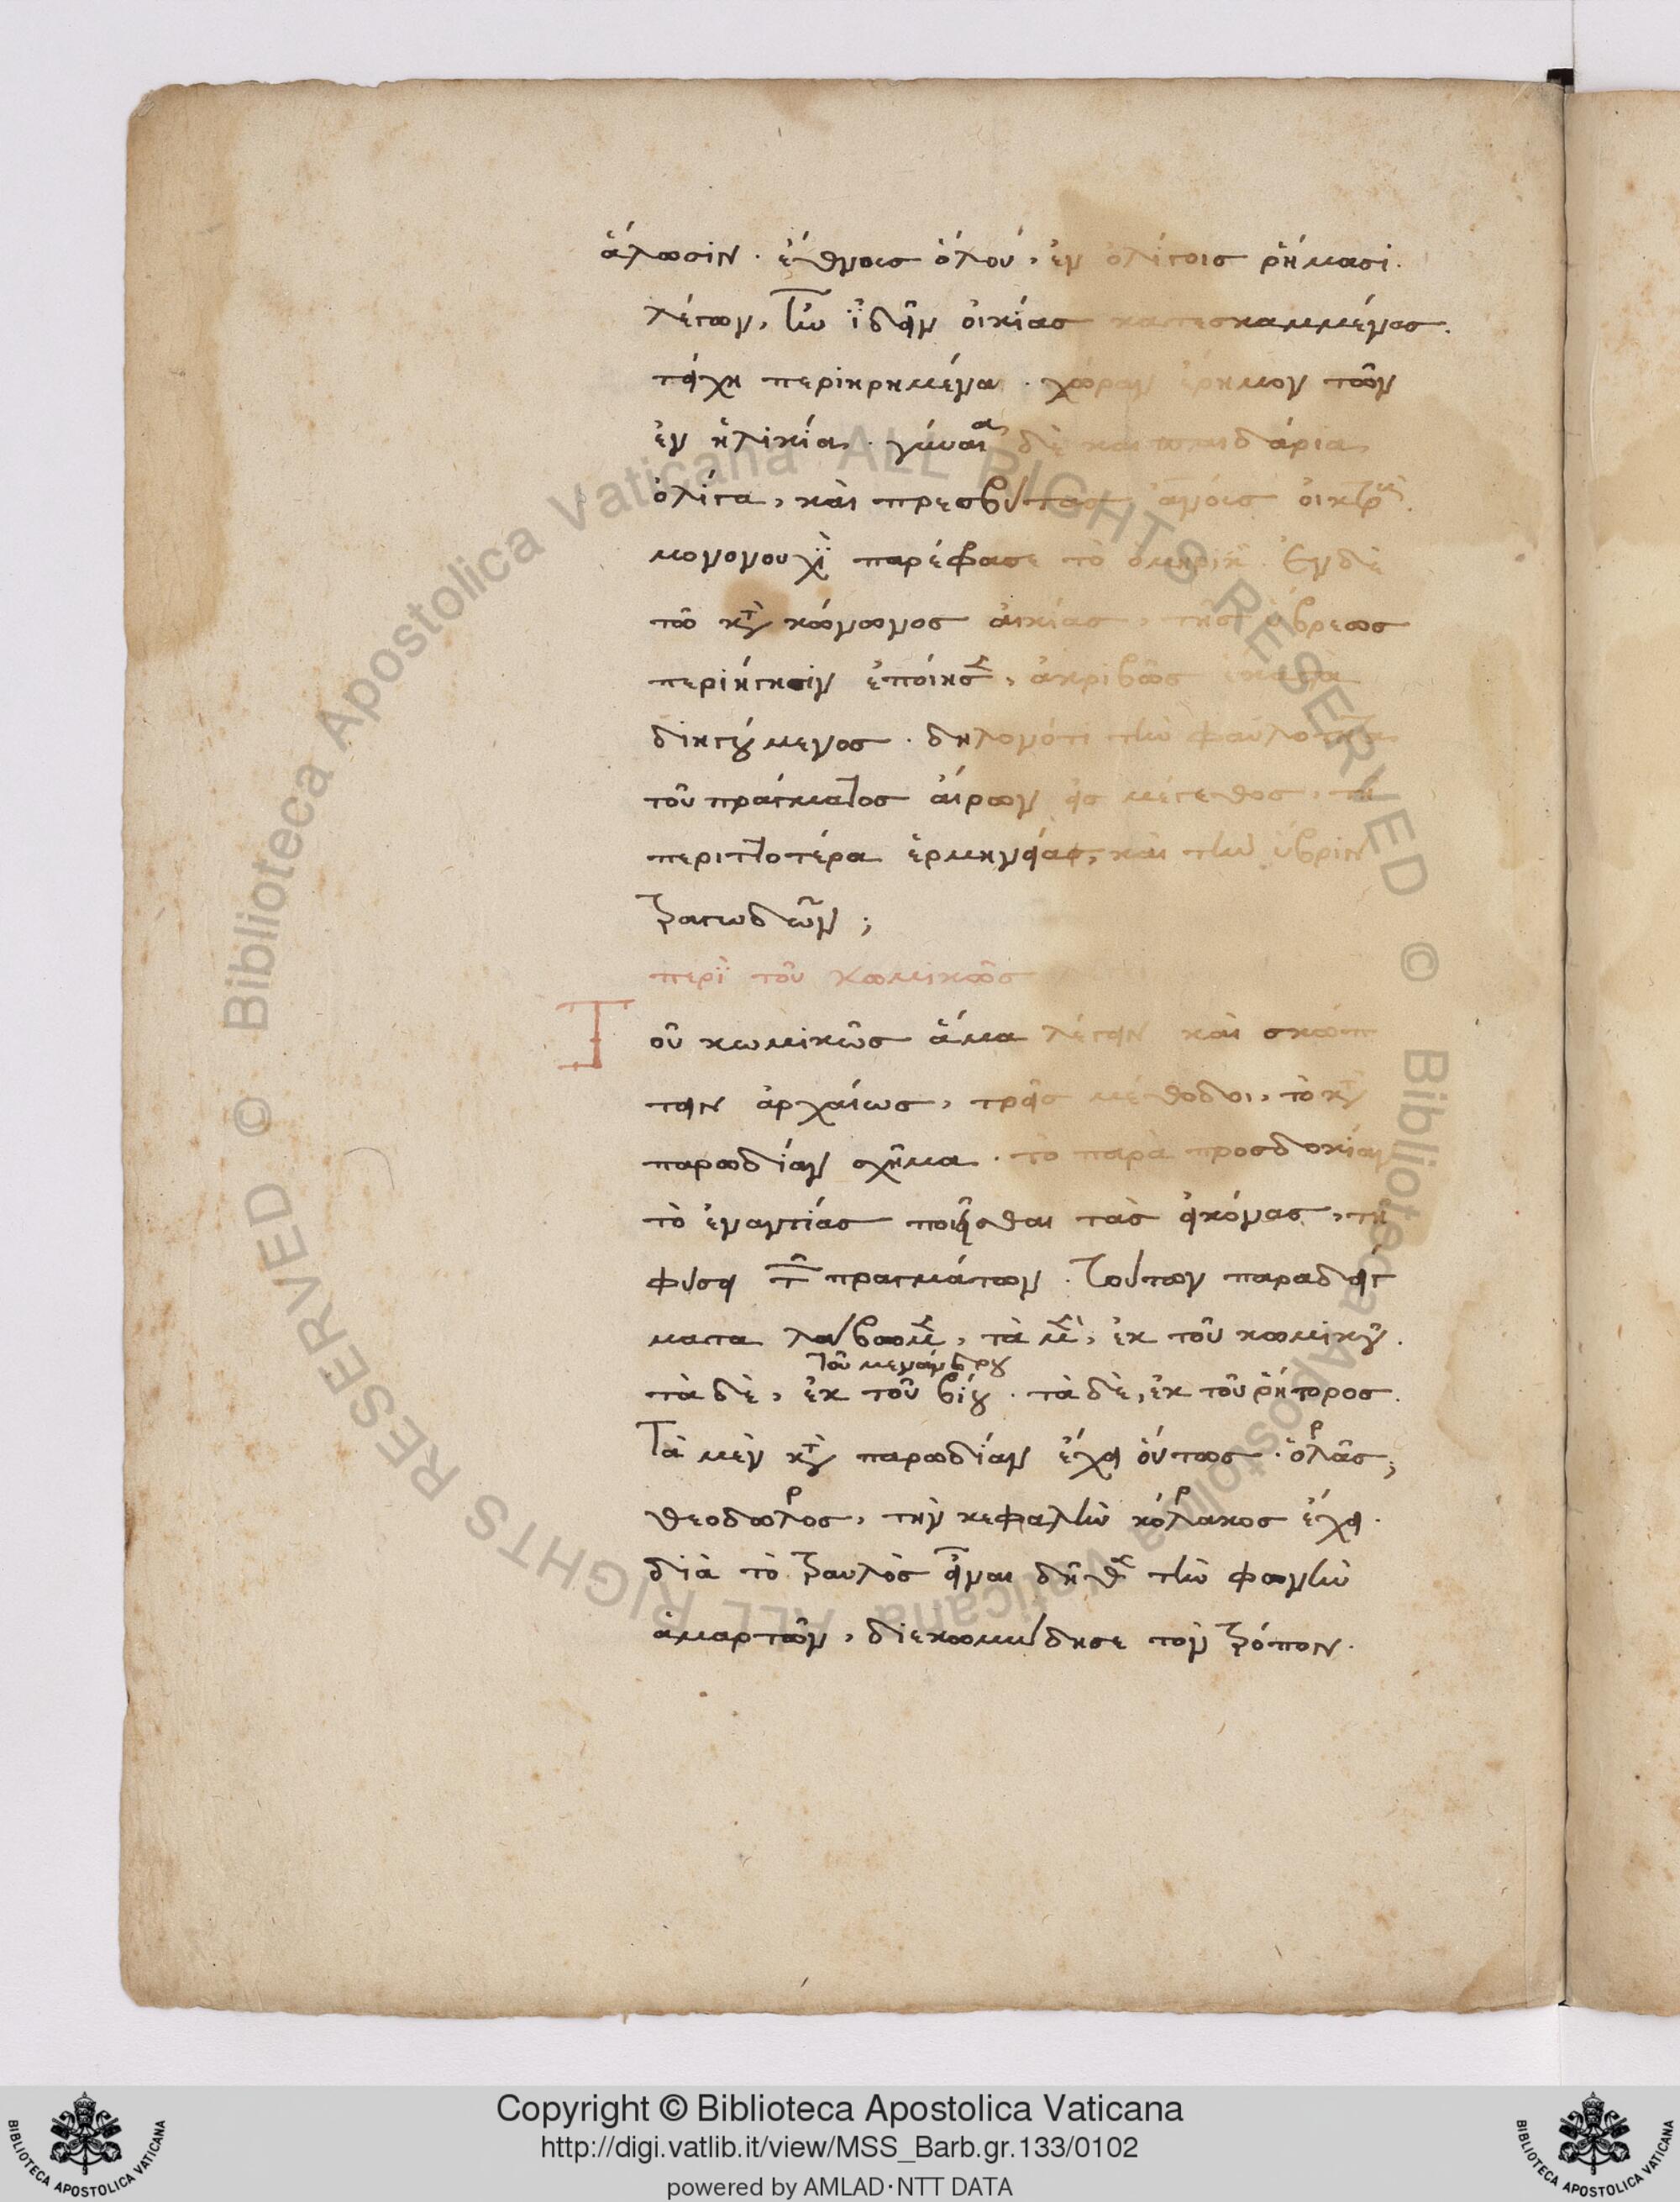 ἅλωσιν. ἔθνους ὅλου, ἐν ὀλίγοις ῥήμασι.
λέγων, ἦν ϊδεῖν οἰκίας κατεσκαμμένας.
τείχη περιηρημένα. χώραν ἔρημον τῶν
ἐν ἡλικία. γύναια δὲ καὶ παιδάρια
ὀλίγα, καὶ πρεσβύτας ἀνους οἰκτρους.
μονονουχϊ παρέφρασε τὸ ὁμηρικ. Ἐν δὲ
τῶ κτ κόνωνος αἰκίας, τῆς ὕβρεως
περιήγησιν ἐποίησ, ἀκριβῶς ἕκαστα
διηγούμενος. δηλονότι τὴν φαυλότητα
τοῦ πράγματος αἴρων εἰς μέγεθος, τῆ
περιττοτέρα ἑρμηνείας, καὶ τὴν ὕβριν
τραγωδῶν;
περϊ τοῦ κωμικῶς
Τοῦ κωμικῶς ἅμα λέγειν καὶ σκώπ
τειν ἀρχαίως, τρεῖς μέθοδοι, τὸ κτ
παρωδίαν σχῆμα. τὸ παρὰ προσδοκίαν
τὸ ἐναντίας ποιεῖσθαι τὰς εἰκόνας, τῆ
φύσει τ πραγμάτων. Τούτων παραδείγ
ματα λάβωμεν, τὰ μὲν, ἐκ τοῦ κωμικοῦ.
τοῦ μενάνδρου
τὰ δὲ, ἐκ τοῦ βίου. τὰ δὲ, ἐκ τοῦ ῥήτορος.
Τὰ μὲν κτ παρωδίαν ἔχει οὕτως. ὁλρᾶς;
θεοδωλρος, τὴν κεφαλὴν κόλρακος ἔχει.
διὰ τὸ τραυλὸς εἶναι δῆθεν τὴν φωνὴν
ἁμαρτῶν, διεκωμώδησε τὸν τρόπον.
Copyright © Biblioteca Apostolica Vaticana
http://digi.vatlib.it/view/MSS_Barb.gr.133/0102
powered by AMLAD·NTT DATA
BIBLIOTECA APOSTOLICA VATICANA
BIBLIOTECA APOSTOLICA VATICANA
© Biblioteca Apostolica Vaticana ALL RIGHTS RESERVED © Biblioteca Apostolica Vaticana ALL RIGHTS RESERVED